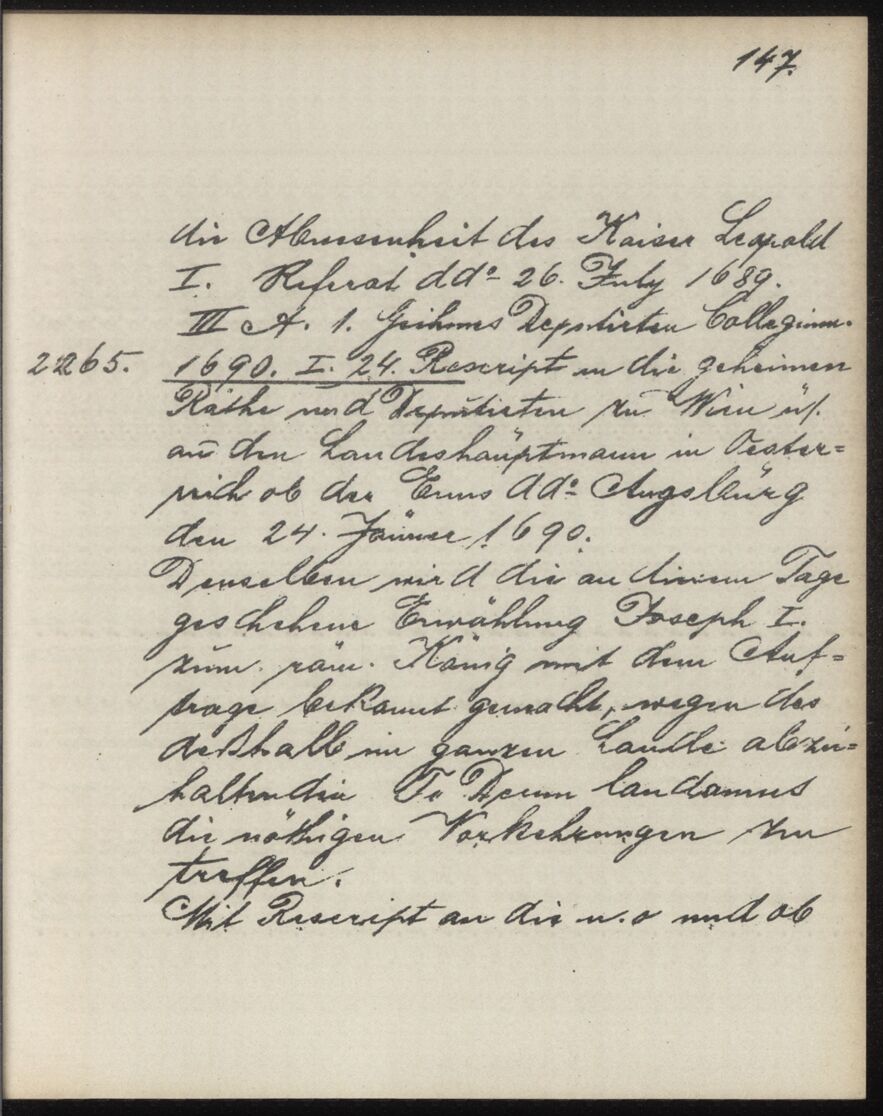 147.
die Abwesenheit des Kaiser Leopold
I. Referat ddo 26. July 1689.
III A. 1. Geheimes Deputirten Collegium.
2265. 1690. I. 24. Rescript an die geheimen
Räthe und Deputirten zu Wien
an den Landeshauptmann in Oester=
reich ob der Enns ddo Augsburg
den 24. Jänner 1690.
Denselben wird die an diesem Tage
geschehene Erwählung Joseph I.
zum röm. König mit dem Auf=
trage bekannt gemacht, wegen des
deßhalb im ganzen Lande abzu=
haltenden Te Deum laudamus
die nöthigen Vorkehrungen zu
treffen.
Mit Rescript an die n. o und ob